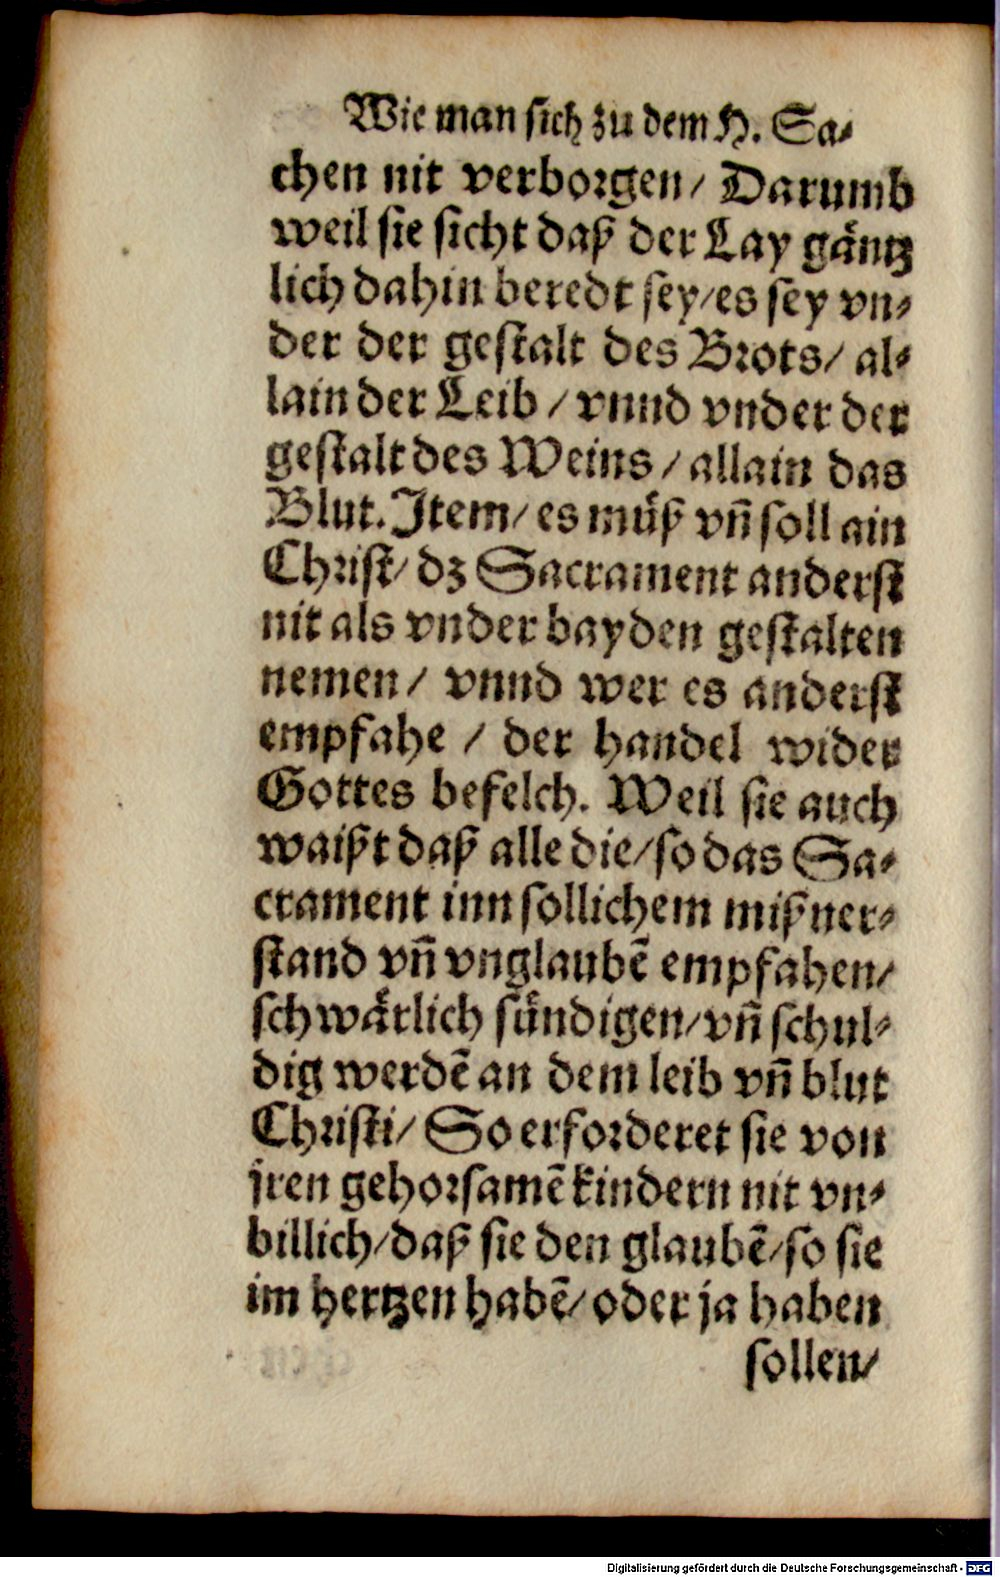 Wie man sich zu dem H. Sa⸗
chen nit verborgen/ Darumb
weil sie sicht daß der Lay gäntz
lich dahin beredt sey/es sey vn⸗
der der gestalt des Brots/ al⸗
lain der Leib / vnnd vnder der
gestalt des Weins / allain das
Blut. Item/ es müß vn̄ soll ain
Christ/ dz Sacrament anderst
nit als vnder bayden gestalten
nemen/ vnnd wer es anderst
empfahe / der handel wider
Gottes befelch. Weil sie auch
waißt daß alle die/so das Sa⸗
crament inn sollichem mißuer⸗
stand vn̄ vnglaubē empfahen/
schwärlich sündigen/vn̄ schul⸗
dig werdē an dem leib vn̄ blut
Christi/ So erforderet sie von
jren gehorsamē kindern nit vn⸗
billich/daß sie den glaubē/so sie
im hertzen habē/ oder ja haben
sollen/
Digitalisierung gefördert durch die Deutsche Forschungsgemeinschaft - DFG